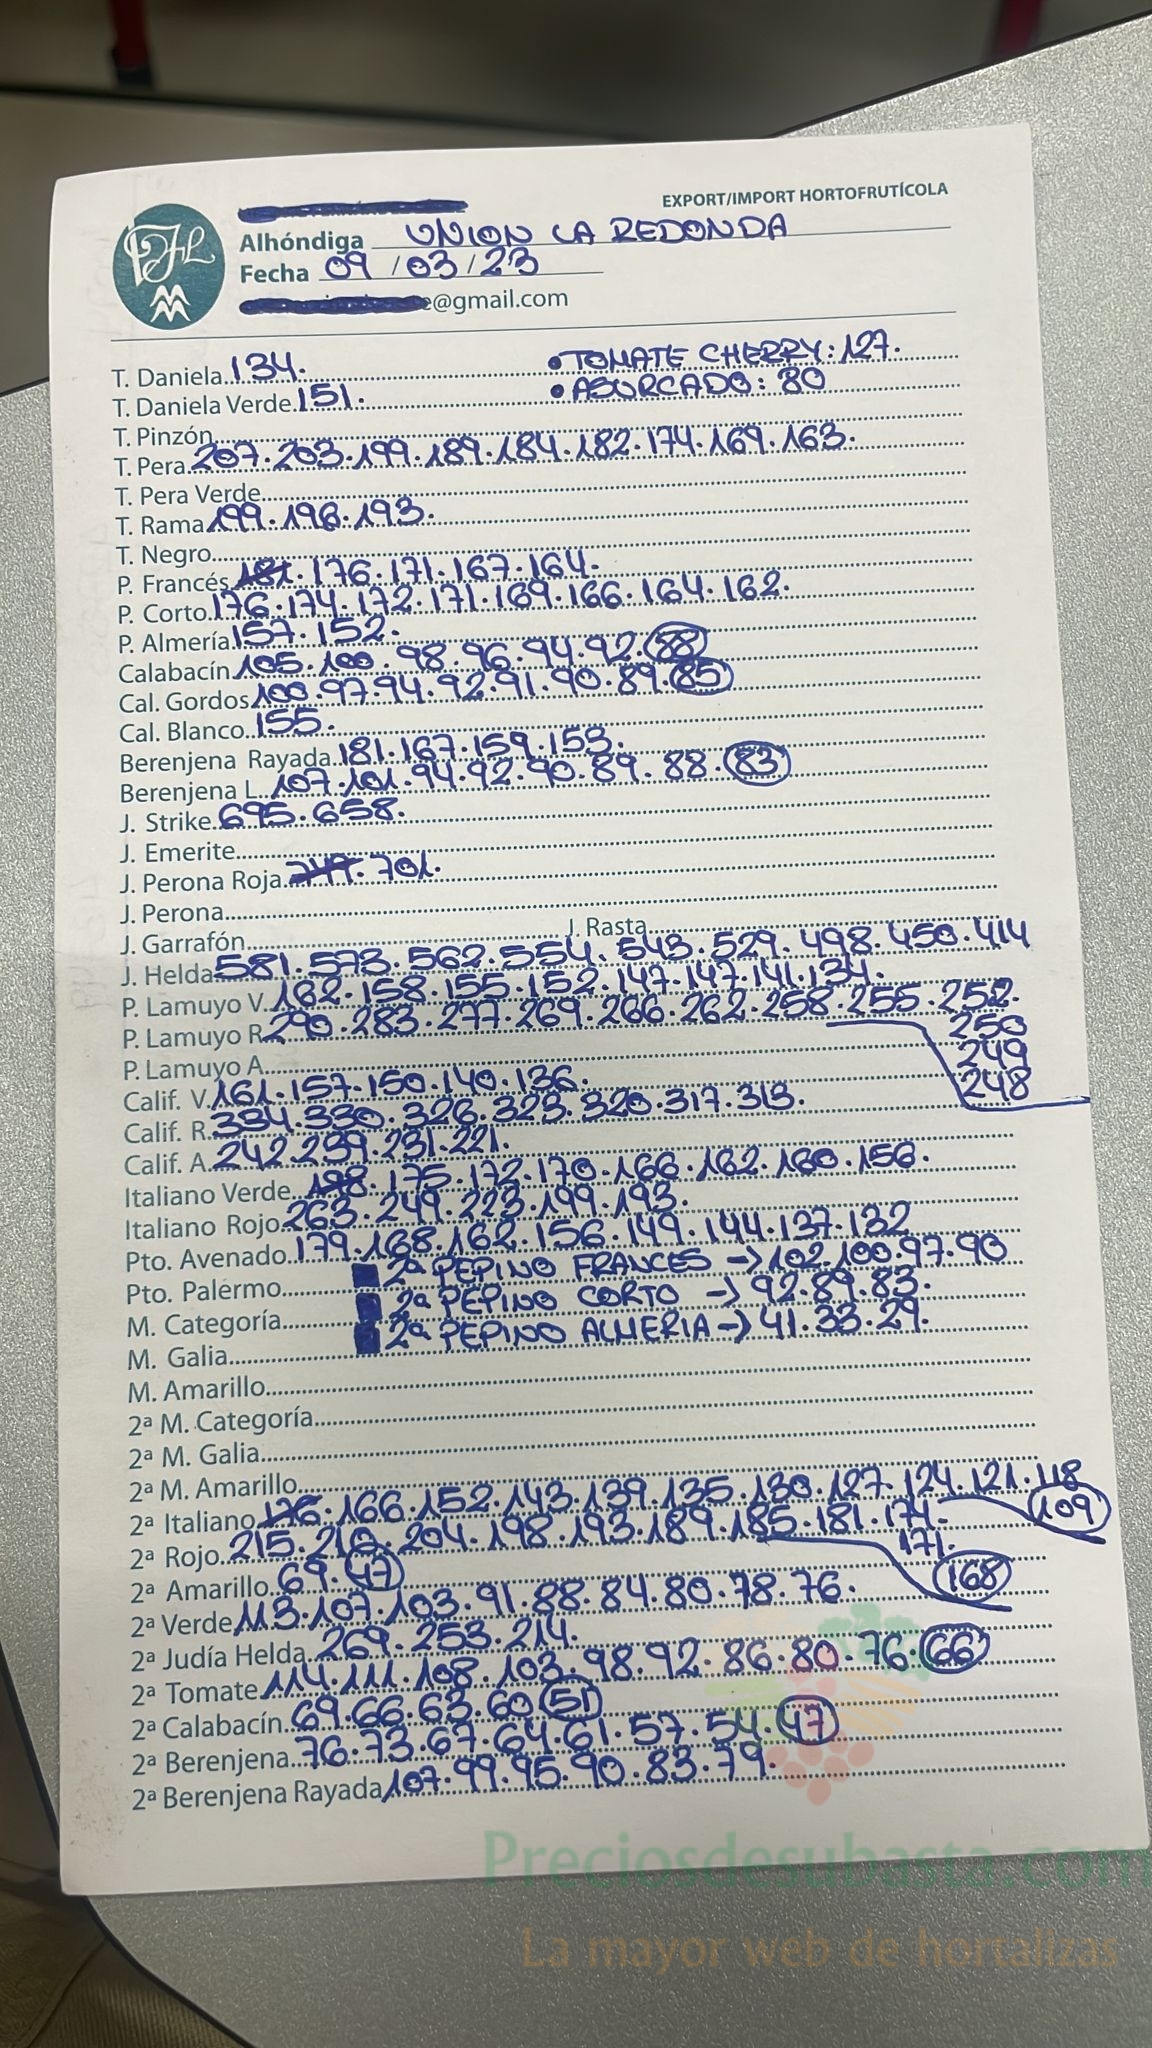 EXPORT/IMPORT HORTOFRUTÍCOLA
Alhóndiga UNION LA REDONDA
Fecha 09/03/23
e@gmail.com
T. Daniela 134. • TOMATE CHERRY: 127.
T. Daniela Verde 151. • ASURCADO: 80
T. Pinzón
T. Pera 207.203.199.189.184.182.174.169.163.
T. Pera Verde
T. Rama 199.196.193.
T. Negro
P. Francés 181.176.171.167.164.
P. Corto 176.174.172.171.169.166.164.162.
P. Almería 157.152.
Calabacín 105.100.98.96.94.92.88
Cal. Gordos 100.97.94.92.91.90.89.85
Cal. Blanco 155.
Berenjena Rayada 181.167.159.153.
Berenjena L. 107.101.94.92.90.89.88.83
J. Strike 695.658.
J. Emerite
J. Perona Roja 749.701.
J. Perona
J. Garrafón J. Rasta
J. Helda 581.573.562.554.543.529.498.450.414
P. Lamuyo V. 162.158.155.152.147.147.141.134.
P. Lamuyo R. 290.283.277.269.266.262.258.255.252.
250
249
248
P. Lamuyo A.
Calif. V. 161.157.150.140.136.
Calif. R. 334.330.326.323.320.317.313.
Calif. A. 242.239.231.221.
Italiano Verde 198.175.172.170.166.162.160.156.
Italiano Rojo 263.249.223.199.193.
Pto. Avenado 179.168.162.156.149.144.137.132
Pto. Palermo 2ª PEPINO FRANCES → 102.100.97.90
M. Categoría 2ª PEPINO CORTO → 92.89.83.
M. Galia 2ª PEPINO ALMERIA → 41.33.29.
M. Amarillo
2ª M. Categoría
2ª M. Galia
2ª M. Amarillo
2ª Italiano 176.166.152.143.139.135.130.127.124.121.118
109
2ª Rojo 215.210.204.198.193.189.185.181.174.
171.
168
2ª Amarillo 69.47
2ª Verde 113.107.103.91.88.84.80.78.76.
2ª Judía Helda 269.253.214.
2ª Tomate 114.111.108.103.98.92.86.80.76.66
2ª Calabacín 69.66.63.60.51
2ª Berenjena 76.73.67.64.61.57.54.47
2ª Berenjena Rayada 107.99.95.90.83.79.
Preciosdesubasta.com
La mayor web de hortalizas